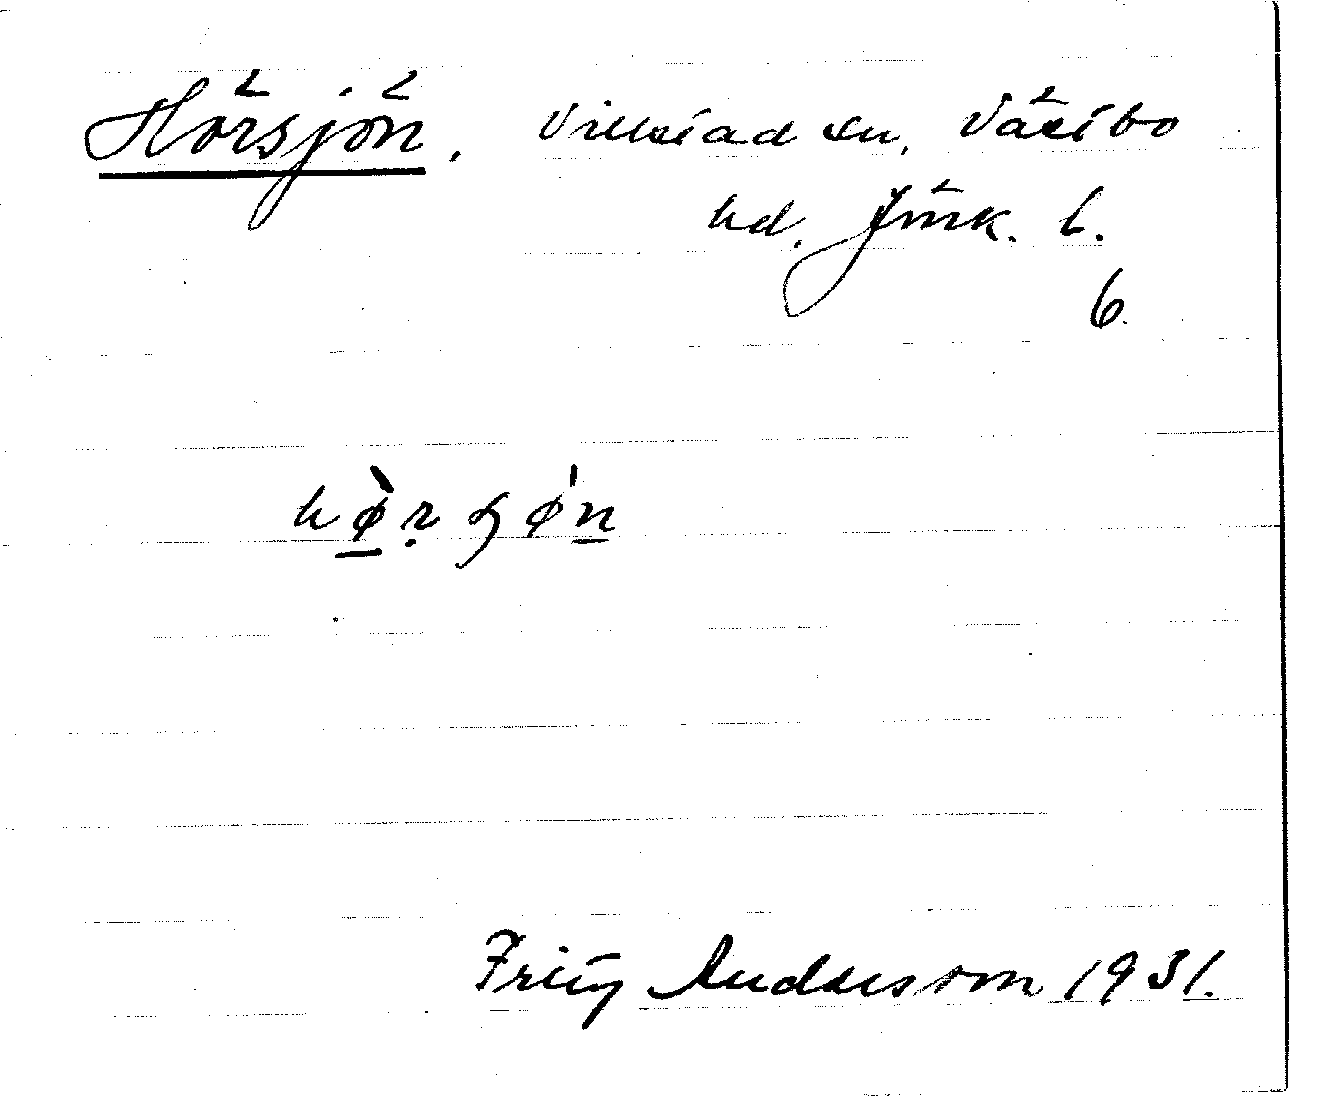 Hörsjön. Villstad sn, Västbo
hd. Jönk. l.
6.
hø̀rʂøn
Fritz Andersson 1931.